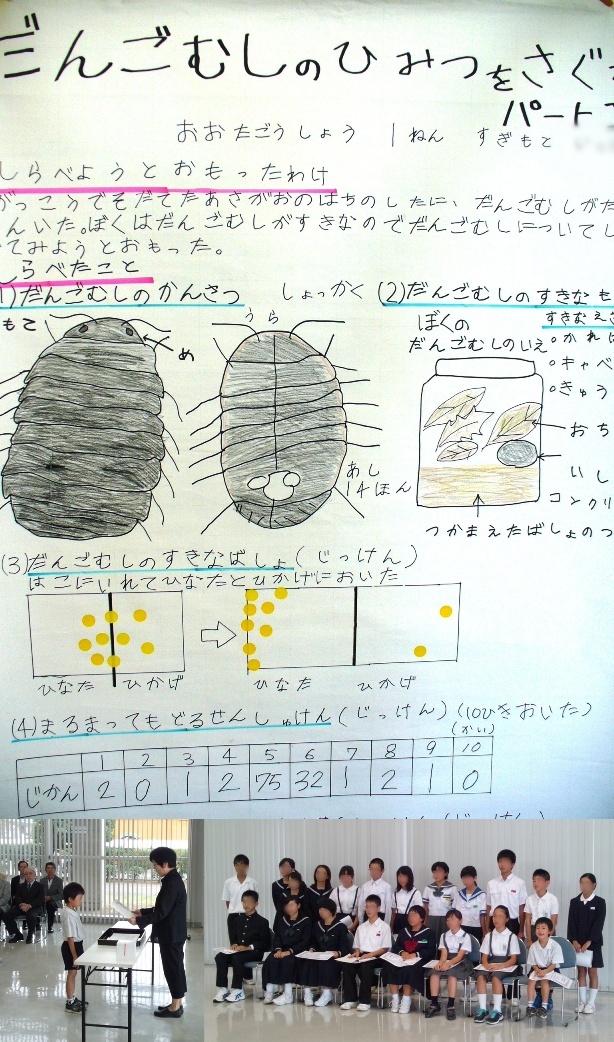 だんごむしのひみつをさぐ
パート
おおたごうしょう 1ねん すぎもと
しらべようとおもったわけ
がっこうでそだてたあさがおのはちのしたに、だんごむしがた
んいた。ぼくはだんごむしがすきなのでだんごむしについてし
てみようとおもった。
しらべたこと
(1)だんごむしのかんさつ
しょっかく
(2)だんごむしのすきなも
もて
め
うら
あし
14ほん
ぼくの
だんごむしのいえ
すきなえさ
かれは
キャベ
きゅう
おち
いし
コンクリ
つかまえたばしょのつ
(3)だんごむしのすきなばしょ(じっけん)
はこにいれてひなたとひかげにおいた
ひなた ひかげ
ひなた ひかげ
(4)まるまってもどるせんしゅけん(じっけん)(10ぴきおいた)
(かい)
1 2 3 4 5 6 7 8 9 10
じかん 2 0 1 2 75 32 1 2 1 0